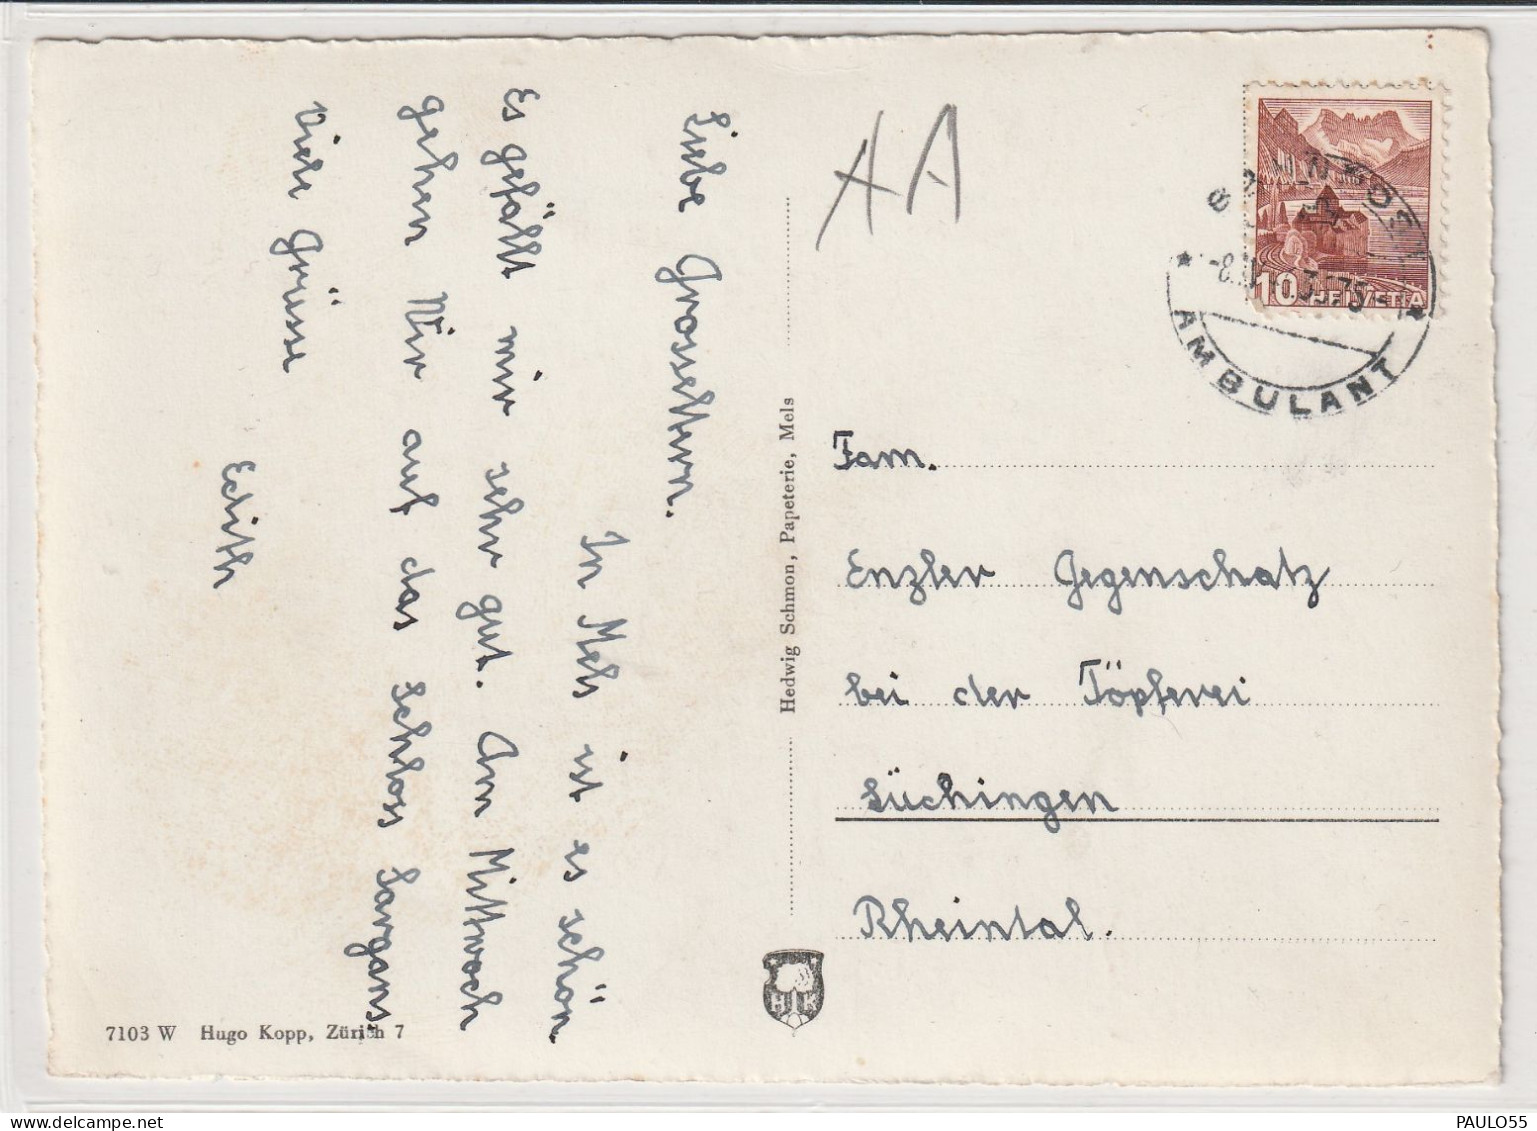 Liebe Grosseltern.
In Mels ist es schön
Es gefällt mir sehr gut. Am Mittwoch
gehen Wir auf das Schloss Sargans.
Viele Grüsse
Edith
AA
HELVETIA
10
AMBULANT
Fam.
Enzler Gegenschatz
bei der Töpferei
Lüchingen
Rheintal.
Hedwig Schmon, Papeterie, Mels
HK
7103 W Hugo Kopp, Zürich 7
delcampe.net
PAULO55